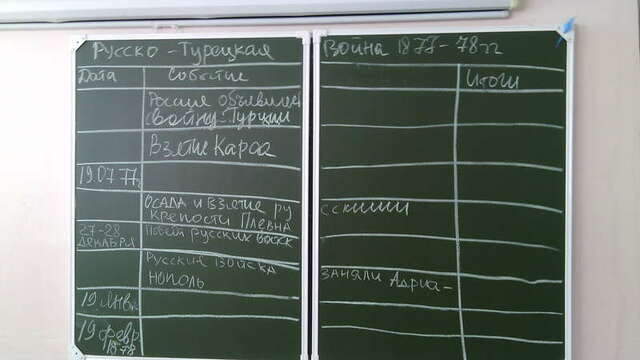 Русско-Турецкая Война 1877-78гг
Дата Событие Итоги
Россия объявляет
войну Турции
Взятие Карса
19.07.77
Осада и взятие русскими
крепости Плевна
27-28
декабря
Победа русских войск
Русские войска заняли Адриа-
нополь
19 янв.
19 февр
1878